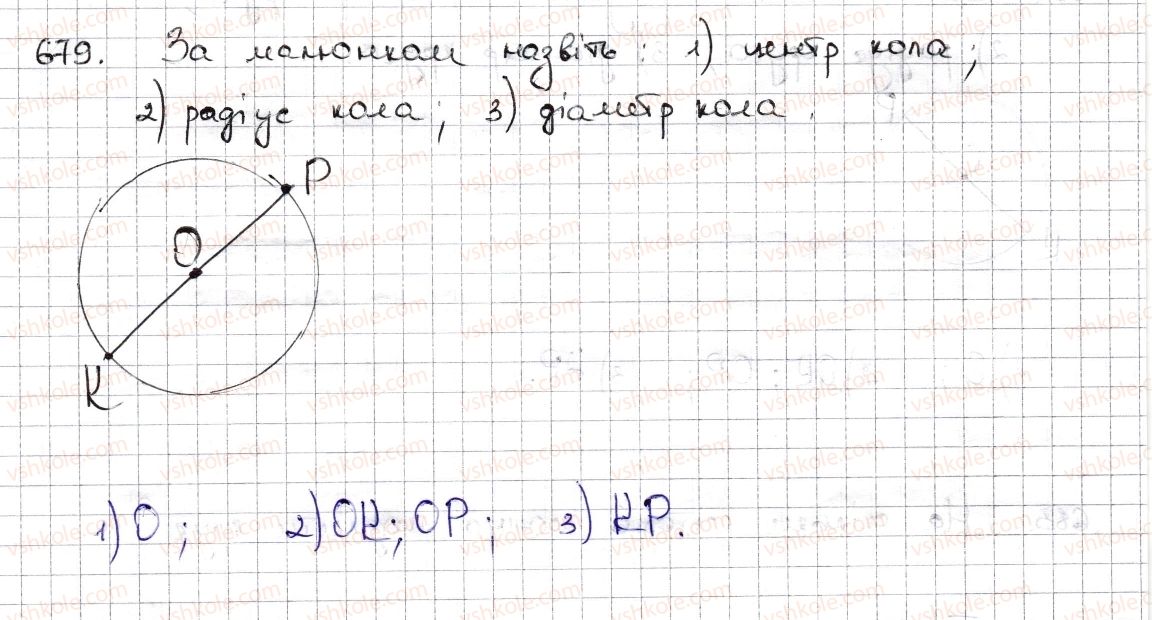 679. За малюнкам назвіть: 1) центр кола;
2) радіус кола; 3) діаметр кола.
P
O
K
1) O; 2) OK; OP; 3) KP.